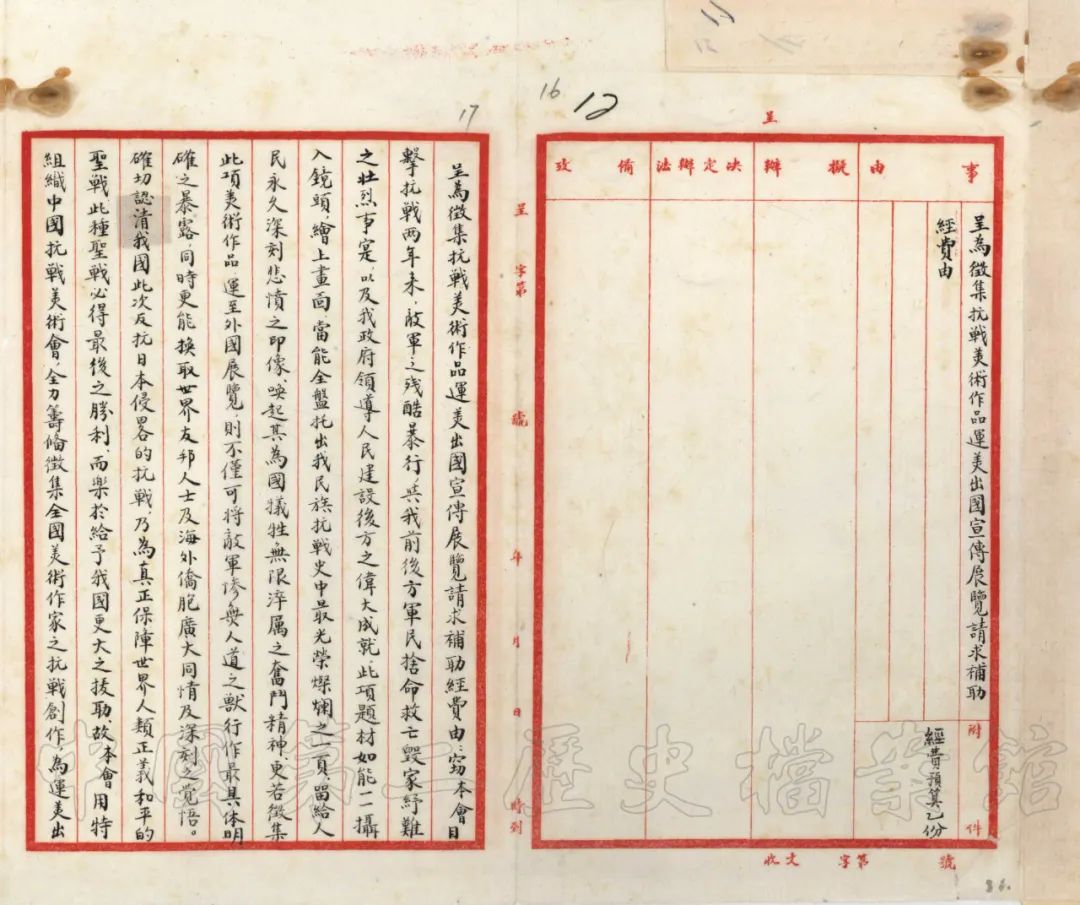 呈
事由
擬辦
決定辦法
備攷
呈為徵集抗戰美術作品運美出國宣傳展覽請求補助
經費由
附件
經費預算乙份
收文 字第 號
呈 字第 號 年 月 日 時到
16
12
17
86.
呈為徵集抗戰美術作品運美出國宣傳展覽請求補助經費由：竊本會目
擊抗戰兩年來，敵軍之残酷暴行，與我前後方軍民捨命救亡毀家紓難
之壯烈事寔，以及我政府領導人民建設後方之偉大成就，此項題材如能一一攝
入鏡頭，繪上畫面，當能全盤托出我民族抗戰史中最光榮燦爛之一頁，留給人
民永久深刻悲憤之印像，喚起其為國犧牲，無限淬厲之奮鬥精神，更若徵集
此項美術作品，運至外國展覽，則不僅可將敵軍慘無人道之獸行作最具体明
確之暴露，同時更能換取世界友邦人士及海外僑胞廣大同情及深刻之覚悟。
確切認清我國此次反抗日本侵畧的抗戰，乃為真正保障世界人類正義和平的
聖戰，此種聖戰必得最後之勝利，而樂於給予我國更大之援助，故本會用特
組織中國抗戰美術會，全力籌備徵集全國美術作家之抗戰創作，為運美出
中國第二歷史檔案館